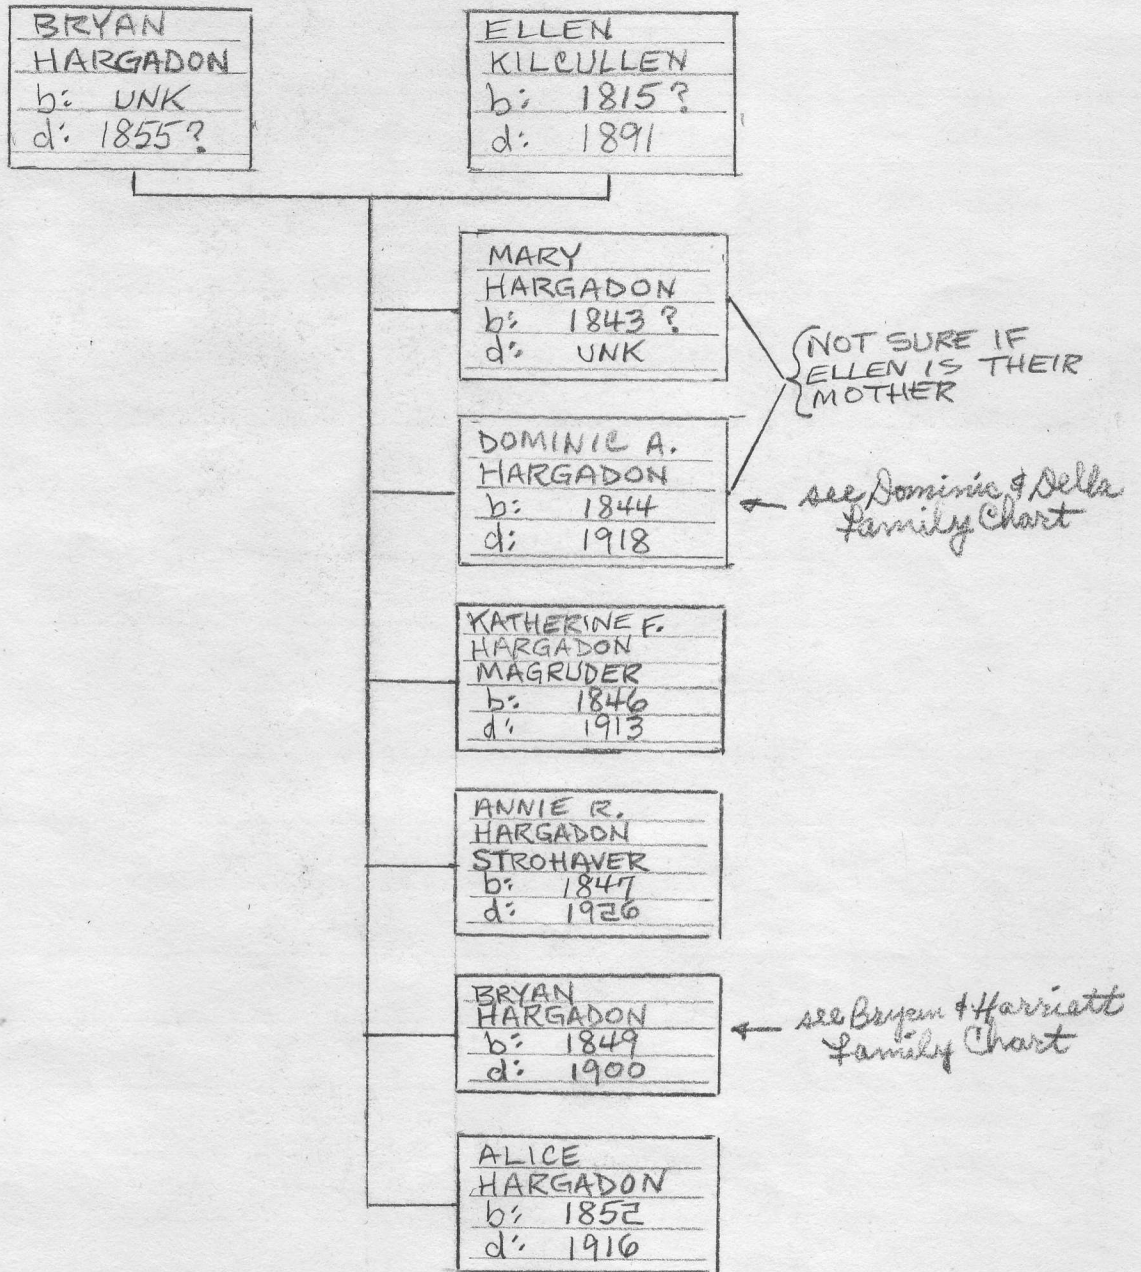 BRYAN
HARGADON
b: UNK
d: 1855?
ELLEN
KILCULLEN
b: 1815?
d: 1891
MARY
HARGADON
b: 1843?
d: UNK
NOT SURE IF
ELLEN IS THEIR
MOTHER
DOMINIC A.
HARGADON
b: 1844
d: 1918
see Dominic & Della
Family Chart
KATHERINE F.
HARGADON
MAGRUDER
b: 1846
d: 1913
ANNIE R.
HARGADON
STROHAVER
b: 1847
d: 1926
BRYAN
HARGADON
b: 1849
d: 1900
see Bryan & Harriatt
Family Chart
ALICE
HARGADON
b: 1852
d: 1916